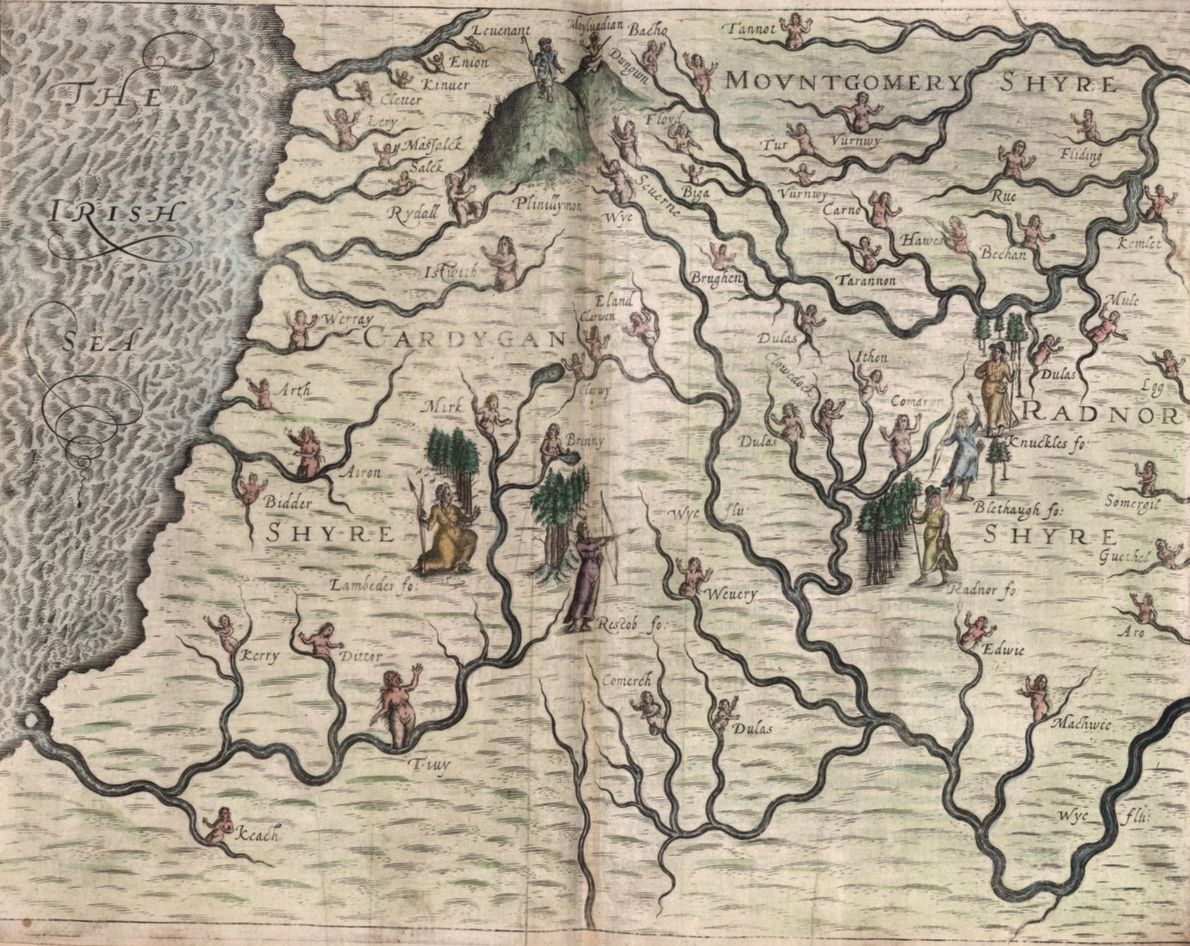 THE
IRISH
SEA
Leuenant
Enion
Kinuer
Cletter
Lery
Massalck
Salck
Rydall
Plinillymon
Moyluadian
Bacho
Dungum
Tannot
MOVNTGOMERY SHYRE
Floyd
Tur
Vurnwy
Vurnwy
Fliding
Biga
Seuerne
Wye
Rue
Carno
Hawes
Bechan
Kemlet
Istwith
Brughen
Tarannon
Mule
Eland
Clarwen
Werray
CARDYGAN
Dulas
Clarwy
Ithon
Clowedock
Comaron
Dulas
Log
RADNOR
Arth
Mirk
Brenny
Dulas
Knuckles fo:
Airon
Bidder
SHYRE
Wye flu:
Blethaugh fo:
Somergil
SHYRE
Guethel
Lambeder fo:
Radnor fo:
Weuery
Rescob fo:
Aro
Kerry
Dittor
Edwie
Comerch
Dulas
Machwee
Tiuy
Keach
Wye flu: